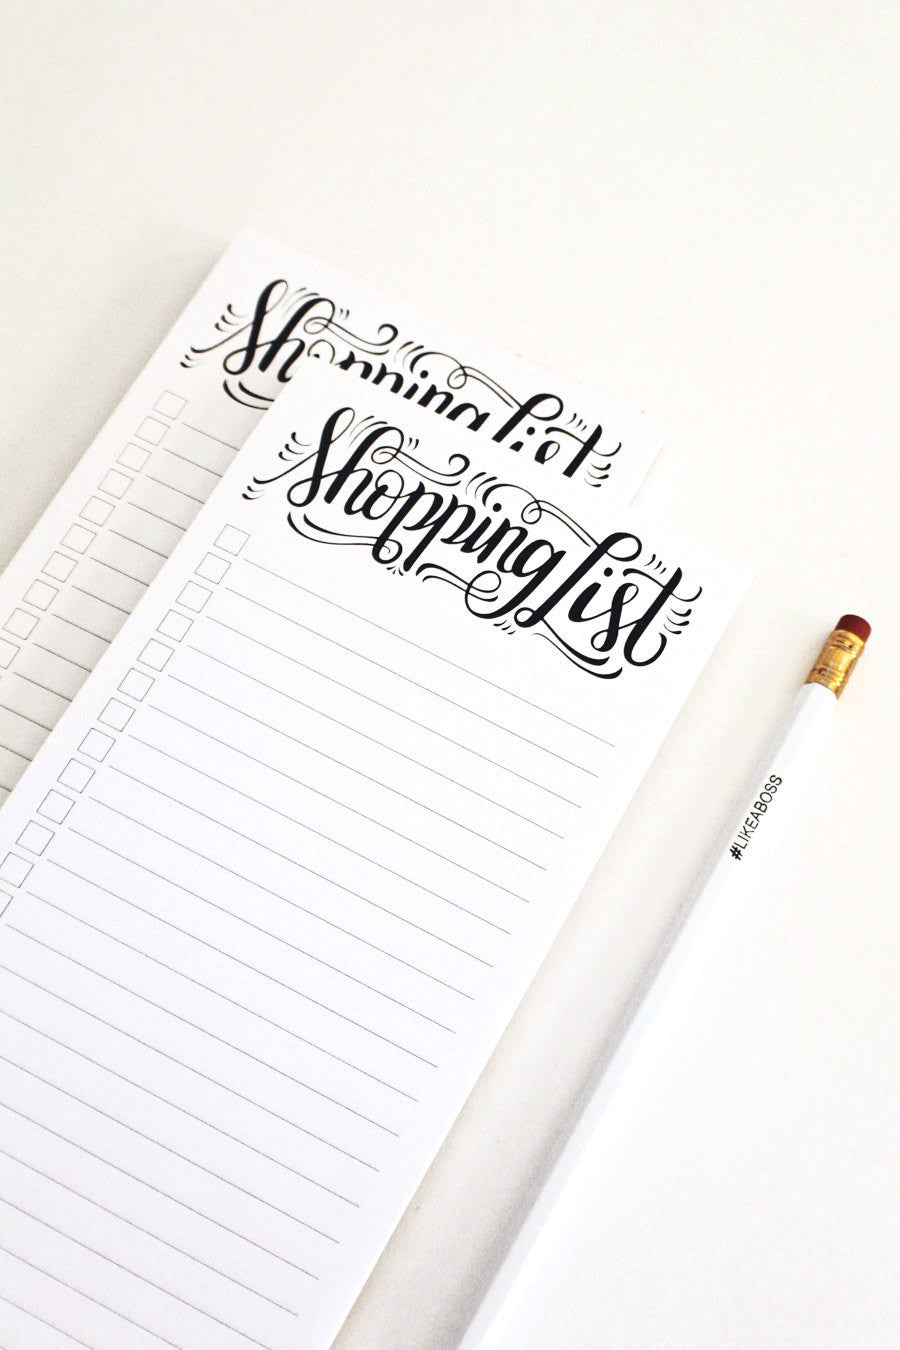 Shopping List
Shopping List
#LIKEABOSS